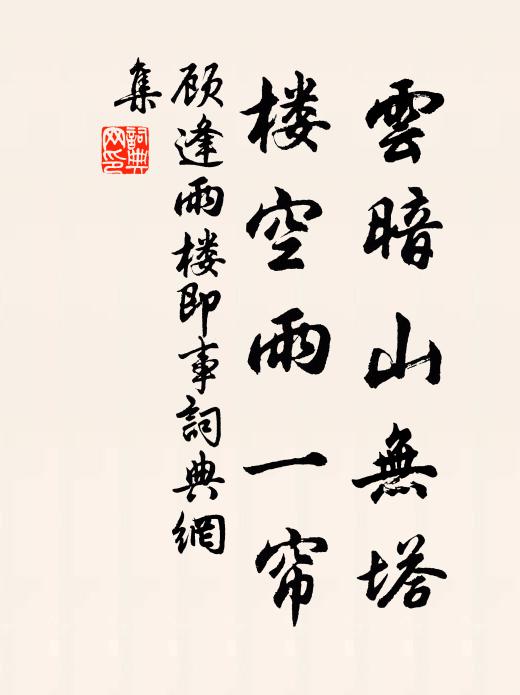 雲暗山無塔
楼空雨一帘
顾逢雨楼即事詞典網
集
詞典
网印